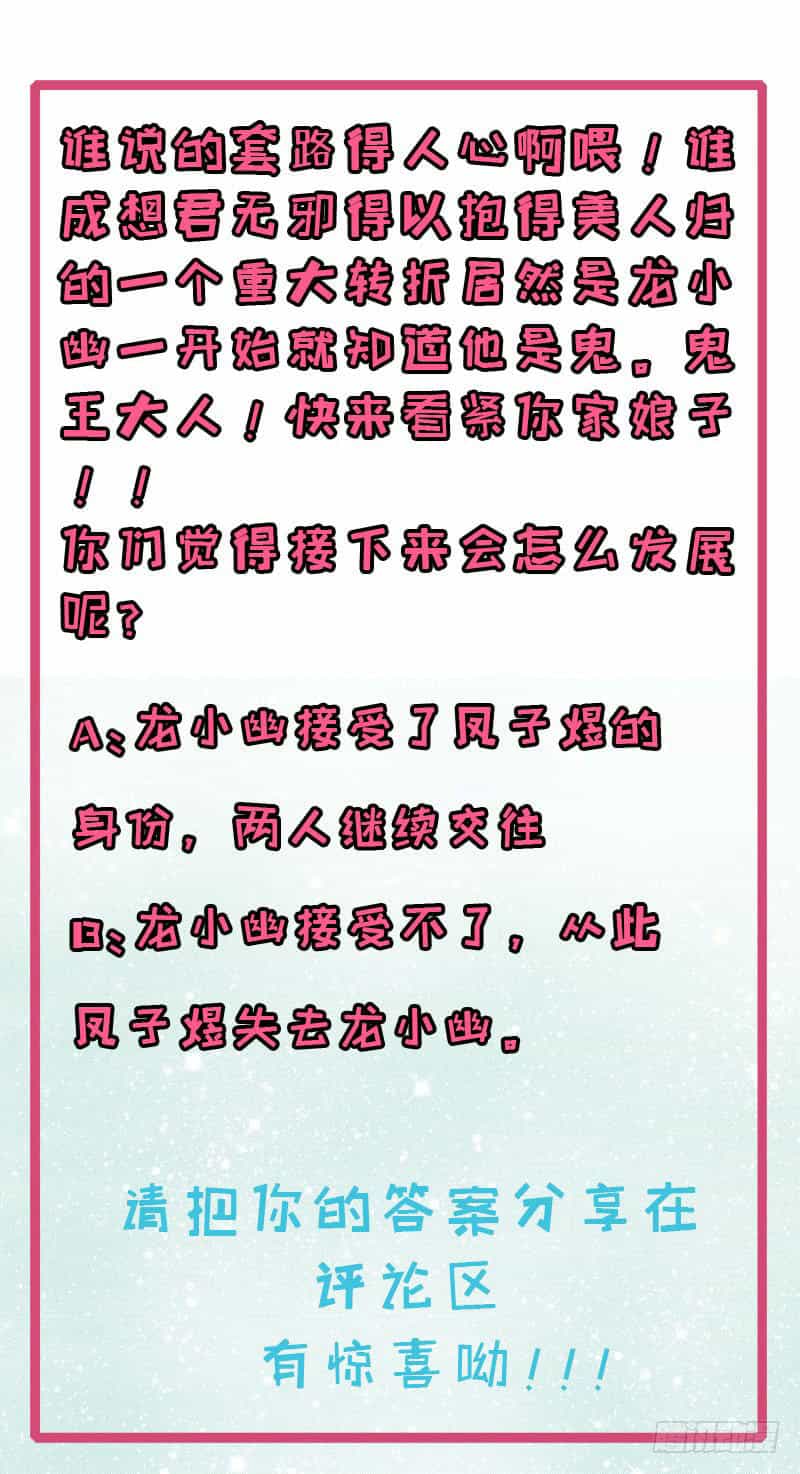 谁说的套路得人心啊喂！谁
成想君无邪得以抱得美人归
的一个重大转折居然是龙小
幽一开始就知道他是鬼。鬼
王大人！快来看紧你家娘子
！！
你们觉得接下来会怎么发展
呢？
A：龙小幽接受了凤子煜的
身份，两人继续交往
B：龙小幽接受不了，从此
凤子煜失去龙小幽。
请把你的答案分享在
评论区
有惊喜呦！！！
腾讯动漫